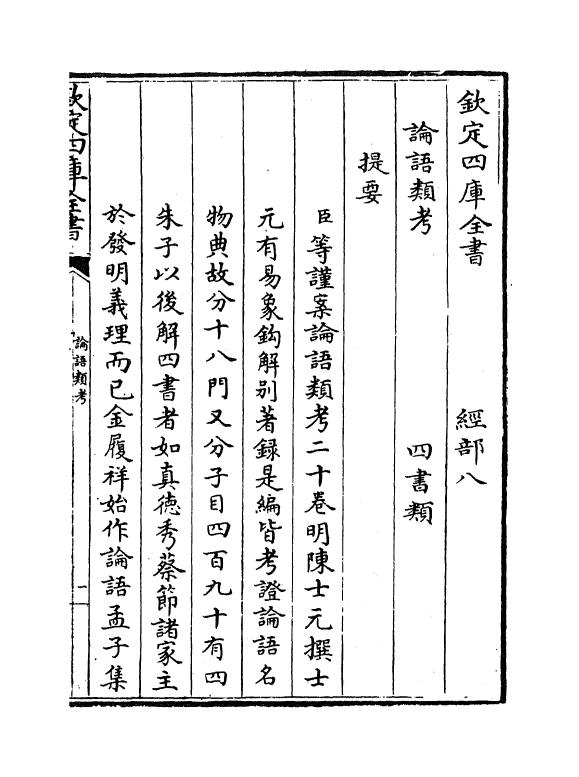 欽定四庫全書　經部八
論語類考　四書類
提要
臣等謹案論語類考二十卷明陳士元撰士
元有易象鈎解别著録是編皆考證論語名
物典故分十八門又分子目四百九十有四
朱子以後解四書者如真徳秀蔡節諸家主
於發明義理而已金履祥始作論語孟子集
欽定四庫全書
論語類考
一